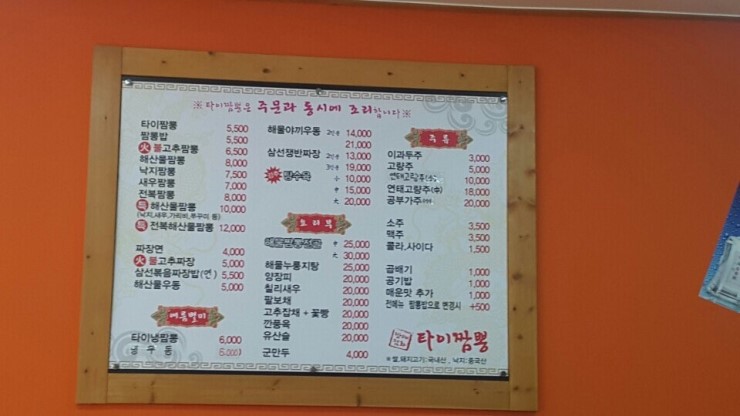 ※ 타이짬뽕은 주문과 동시에 조리합니다 ※
타이짬뽕 5,500
짬뽕밥 5,500
火 불고추짬뽕 6,500
해산물짬뽕 8,000
낙지짬뽕 7,500
새우짬뽕 7,000
전복짬뽕 8,000
특 해산물짬뽕 10,000
(낙지,새우,가리비,쭈꾸미 등)
특 전복해산물짬뽕 12,000
짜장면 4,000
火 불고추짜장 5,000
삼선볶음짜장밥(면) 5,500
해산물우동 5,000
여름별미
타이냉짬뽕 6,000
냉우동 (6,000)
해물야끼우동 2인분 14,000
21,000
삼선쟁반짜장 2인분 13,000
3인분 19,000
탕수육 小 10,000
中 15,000
大 20,000
요리부
해물짬뽕전골 中 25,000
大 30,000
해물누룽지탕 25,000
양장피 20,000
칠리새우 20,000
팔보채 20,000
고추잡채 + 꽃빵 20,000
깐풍육 20,000
유산슬 20,000
군만두 4,000
주류
이과두주 3,000
고량주 5,000
연태고량주(小) 10,000
연태고량주(中) 18,000
공부가주 20,000
소주 3,500
맥주 3,500
콜라,사이다 1,500
곱배기 1,000
공기밥 1,000
매운맛 추가 1,000
전메뉴 짬뽕밥으로 변경시 +500
타이짬뽕
※ 쌀,돼지고기: 국내산 , 낙지: 중국산